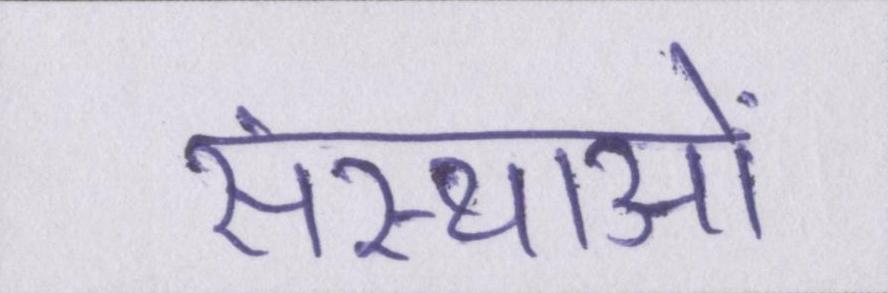 संस्थाओं